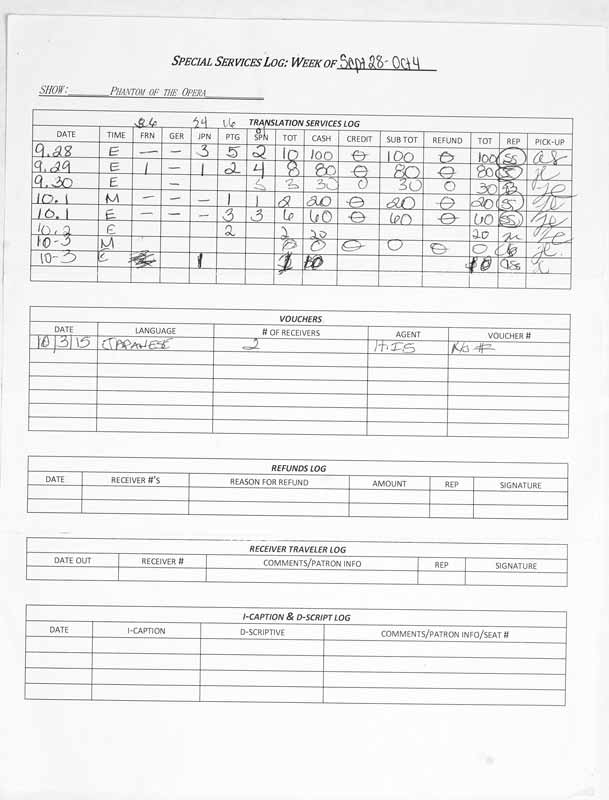 SPECIAL SERVICES LOG: WEEK OF Sept 28-Oct 4
SHOW: PHANTOM OF THE OPERA
24 16
TRANSLATION SERVICES LOG
DATE TIME FRN GER JPN PTG SPN TOT CASH CREDIT SUB TOT REFUND TOT REP PICK-UP
9.28 E — — 3 5 2 10 100 0 100 0 100 SS
9.29 E 1 — 1 2 4 8 80 0 80 0 80 SS
9.30 E — 3 3 30 0 30 0 30
10.1 M — — — 1 1 2 20 0 20 0 20 SS
10.1 E — — — 3 3 6 60 0 60 0 60 SS
10.2 E 2 2 20 20
10-3 M 0 0 0 0 0 0
10-3 E 1 1 10 10 SS
VOUCHERS
DATE LANGUAGE # OF RECEIVERS AGENT VOUCHER #
10/3/15 JAPANESE 2 H.I.S No #
REFUNDS LOG
DATE RECEIVER #'S REASON FOR REFUND AMOUNT REP SIGNATURE
RECEIVER TRAVELER LOG
DATE OUT RECEIVER # COMMENTS/PATRON INFO REP SIGNATURE
I-CAPTION & D-SCRIPT LOG
DATE I-CAPTION D-SCRIPTIVE COMMENTS/PATRON INFO/SEAT #